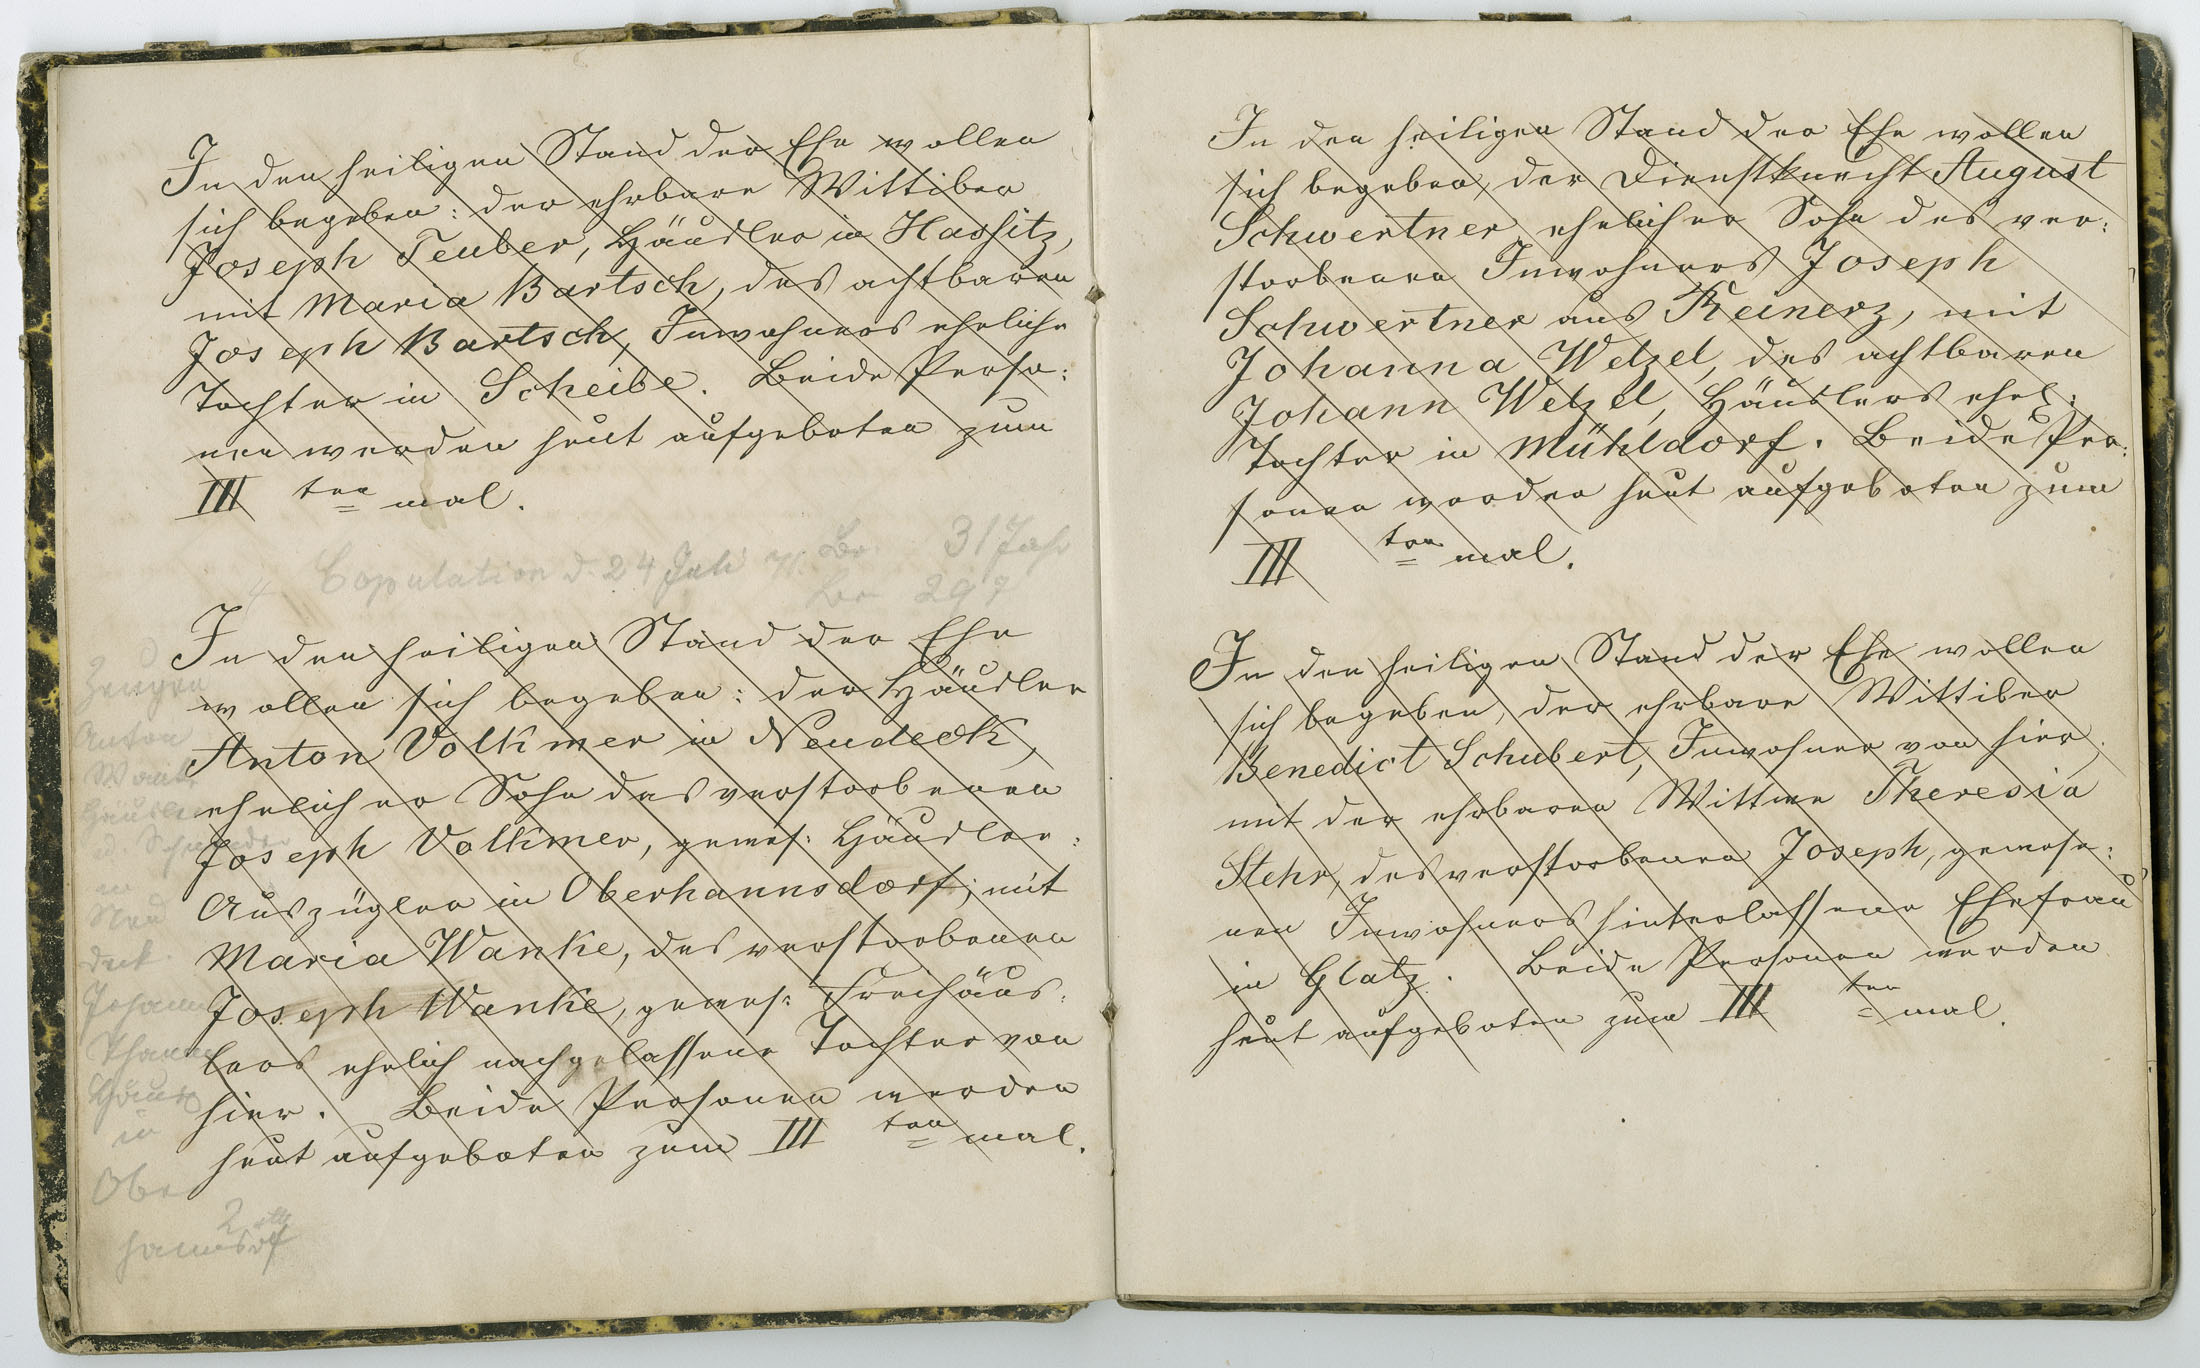 In den heiligen Stand der Ehe wollen
sich begeben: der ehrbare Wittiber
Joseph Teuber, Häudler in Hassitz,
mit Maria Bartsch, des achtbaren
Joseph Bartsch, Inwohners eheliche
Tochter in Scheibe. Beide Perso:
nen werden heut aufgeboten zum
III ten mal.
Copulation d. 24 Juli 31 Jahr
29 7
In den heiligen Stand der Ehe
wollen sich begeben: der Häudler
Anton Volkmer in Neudeck,
ehelicher Sohn des verstorbenen
Joseph Volkmer, gewes: Häudler:
Auszügler in Oberhannsdorf; mit
Maria Wanke, des verstorbenen
Joseph Wanke, gewes: Freihäus:
lers ehelich nachgelassene Tochter von
hier. Beide Personen werden
heut aufgeboten zum III ten mal.
Zeugen
Anton
in
Neu
deck.
Johann
in
Obe
hannsdorf
In den heiligen Stand der Ehe wollen
sich begeben, der Dienstknecht August
Schwertner, ehelicher Sohn des ver:
storbenen Inwohners Joseph
Schwertner aus Reinerz, mit
Johanna Wetzel, des achtbaren
Johann Wetzel, Häuslers ehel:
Tochter in Mühldorf. Beide Per:
sonen werden heut aufgeboten zum
III ten mal.
In den heiligen Stand der Ehe wollen
sich begeben, der ehrbare Wittiber
Benedict Schubert, Inwohner von hier,
mit der ehrbaren Wittwe Theresia
Stehr, des verstorbenen Joseph, gewese:
nen Inwohners hinterlassene Ehefrau
in Glatz. Beide Personen werden
heut aufgeboten zum III ten mal.